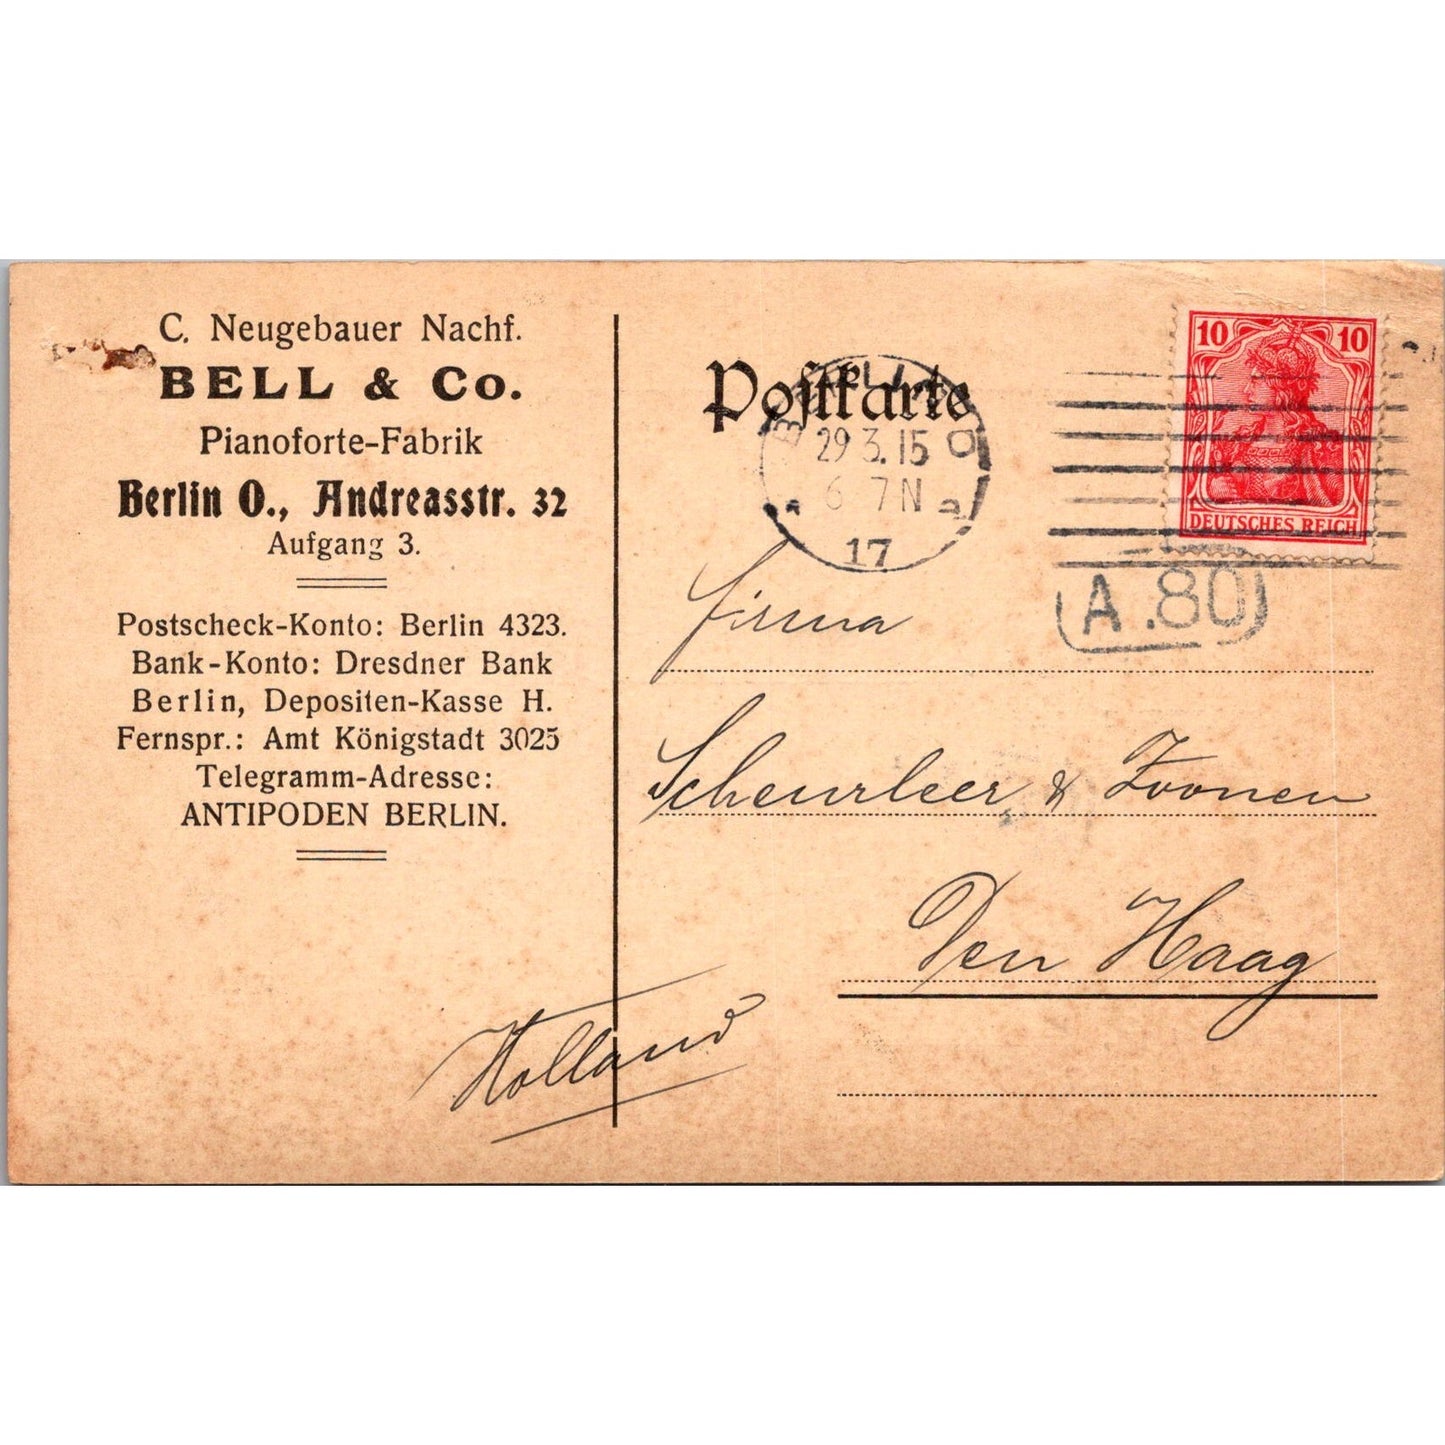 C. Neugebauer Nachf.
BELL & Co.
Pianoforte-Fabrik
Berlin O., Andreasstr. 32
Aufgang 3.
Postscheck-Konto: Berlin 4323.
Bank-Konto: Dresdner Bank
Berlin, Depositen-Kasse H.
Fernspr.: Amt Königstadt 3025
Telegramm-Adresse:
ANTIPODEN BERLIN.
Postkarte
BERLIN O
29 3. 15
6 7 N
17
10 10
DEUTSCHES REICH
A.80
Firma
Scheurleer & Zoonen
Den Haag
Holland